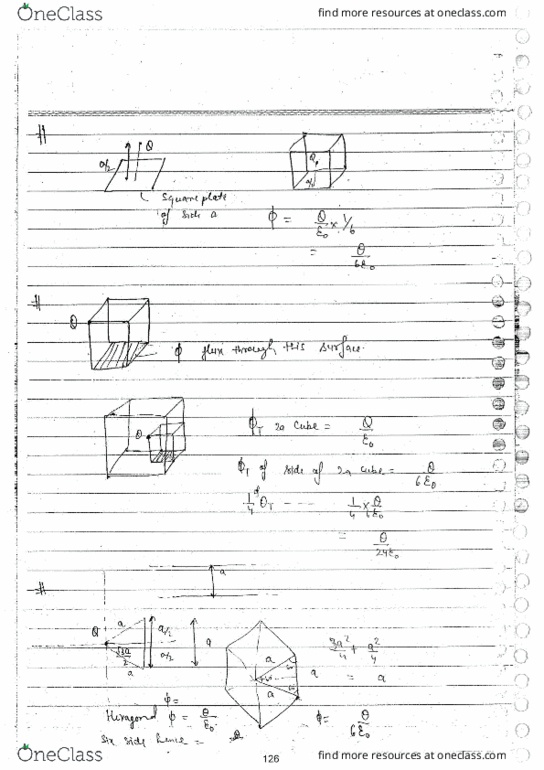 OneClass
find more resources at oneclass.com
#
a/2
Q
Square plate
of side a
Q
a/2
ϕ = Q/ε₀ × 1/6
= Q/6ε₀
#
Q
ϕ flux through this surface.
Q
ϕT 2a cube = Q/ε₀
ϕT of side of 2a cube = Q/6ε₀
1/4 of ϕT ---- 1/4 × Q/ε₀
= Q/24ε₀
#
a
Q
a
√3a/2
a
a/2
a/2
a
a
a
a
3a²/4 + a²/4
= a
ϕ =
Hexagonal ϕ = Q/ε₀.
ϕ = Q/6ε₀
six side hence =
126
OneClass
find more resources at oneclass.com